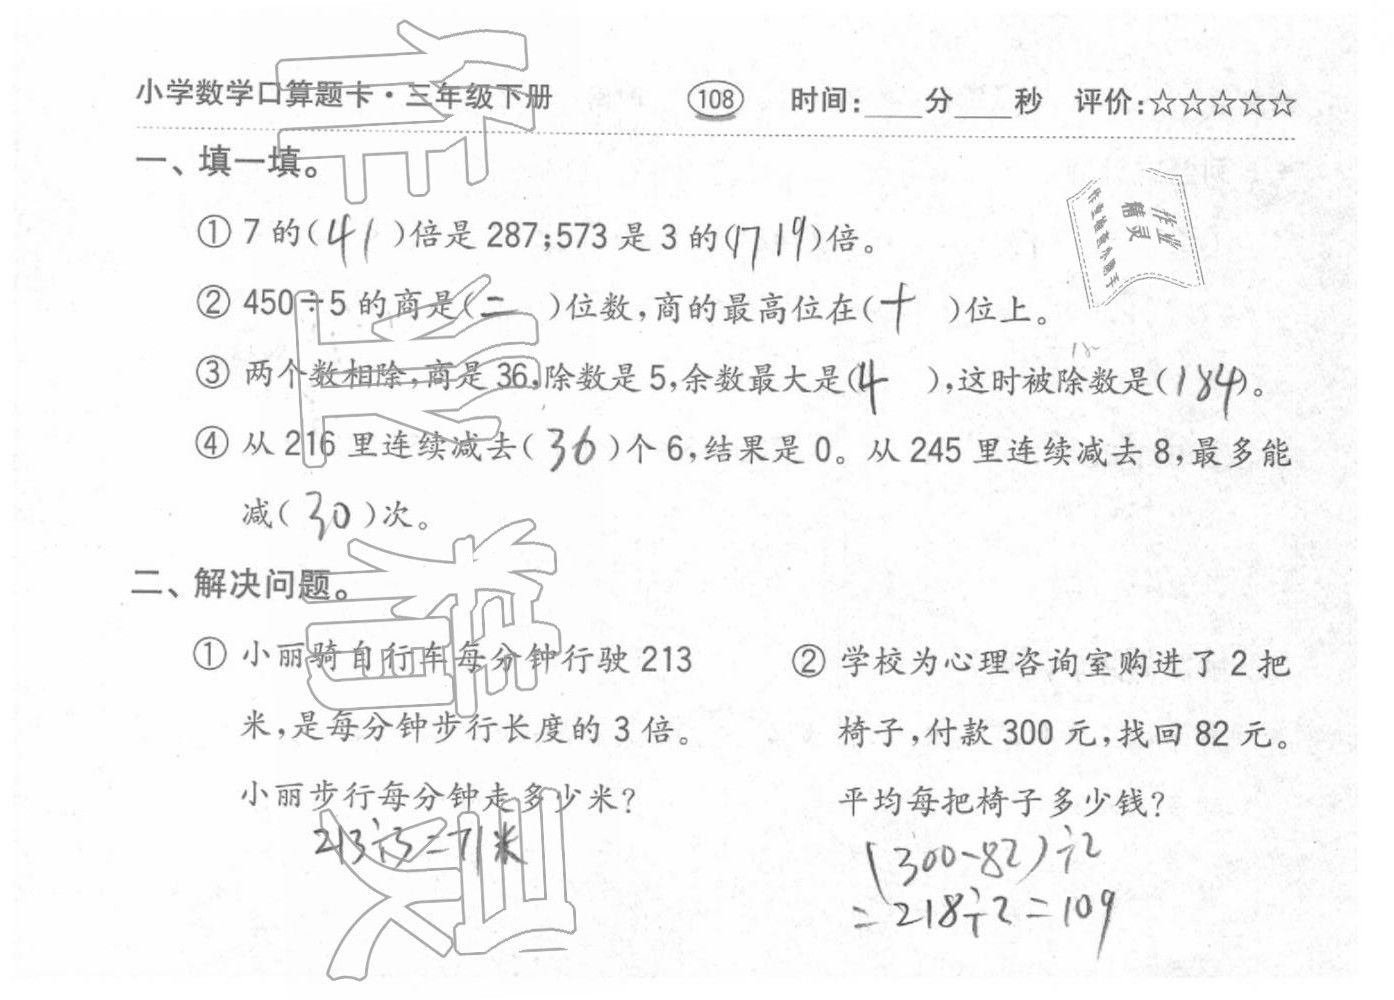 小学数学口算题卡·三年级下册 108 时间:____分____秒 评价:☆☆☆☆☆
一、填一填。
① 7 的(41)倍是 287;573 是 3 的(1719)倍。
② 450÷5 的商是(二)位数,商的最高位在(十)位上。
③ 两个数相除,商是 36,除数是 5,余数最大是(4),这时被除数是(184)。
④ 从 216 里连续减去(36)个 6,结果是 0。从 245 里连续减去 8,最多能
减(30)次。
二、解决问题。
① 小丽骑自行车每分钟行驶 213
米,是每分钟步行长度的 3 倍。
小丽步行每分钟走多少米?
213÷3=71米
② 学校为心理咨询室购进了 2 把
椅子,付款 300 元,找回 82 元。
平均每把椅子多少钱?
(300-82)÷2
=218÷2=109
作业
精灵
作业精灵